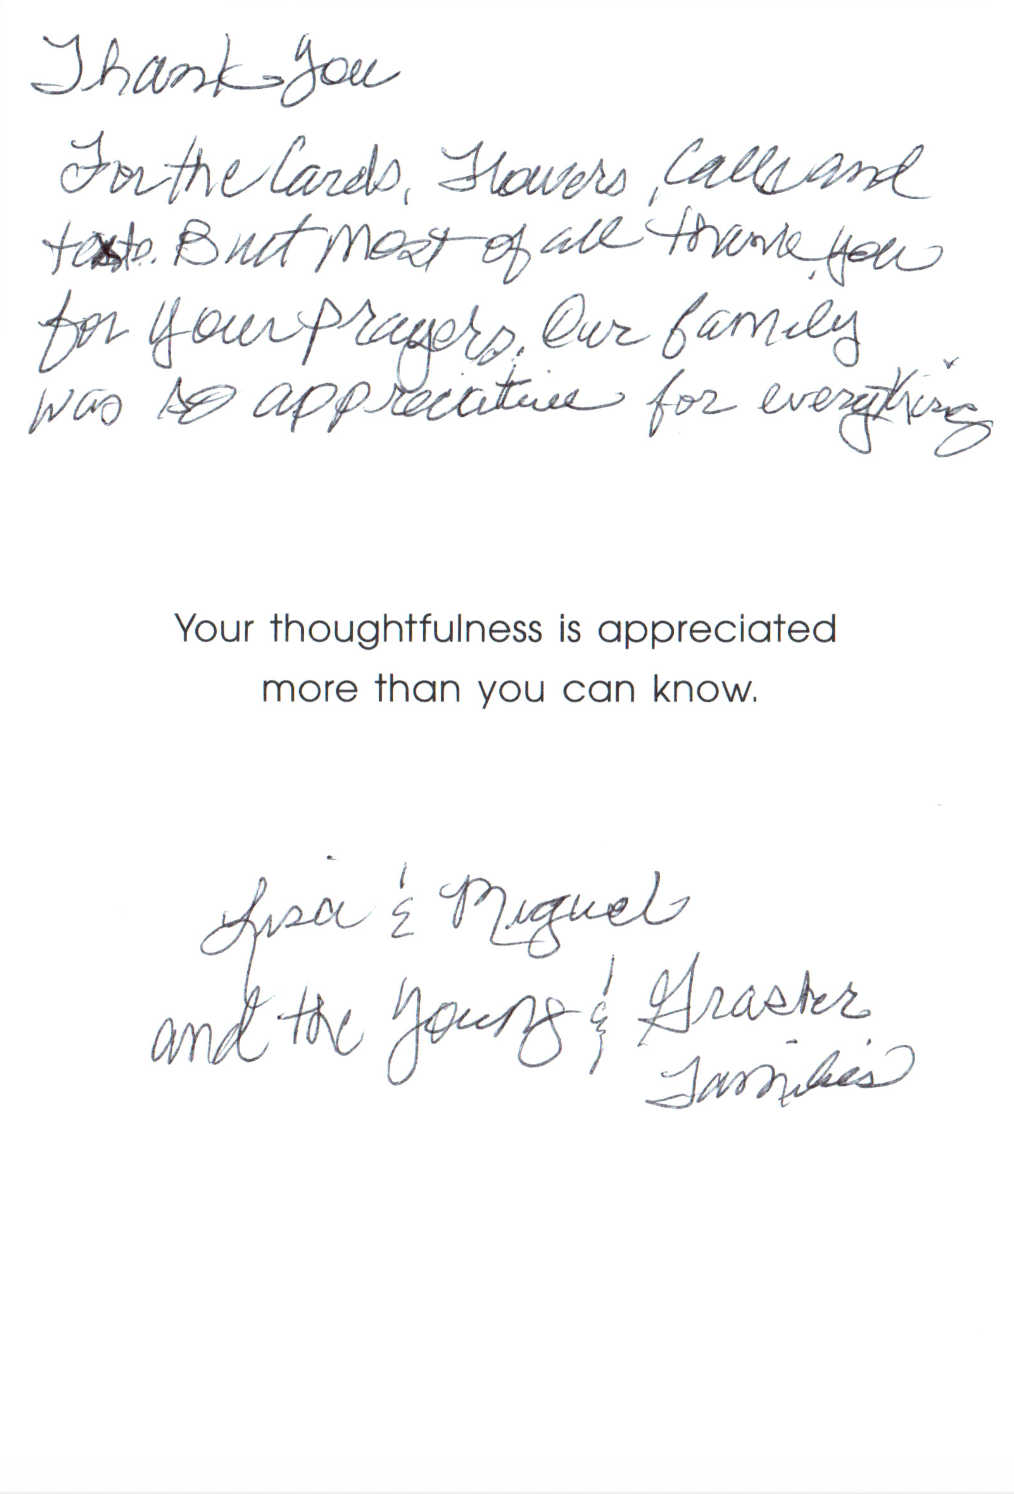 Thank You
For the Cards, Flowers, Calls and
texts. But most of all thank you
for your prayers. Our family
was so appreciative for everything
Your thoughtfulness is appreciated
more than you can know.
Lisa & Miguel
and the Young &
Families